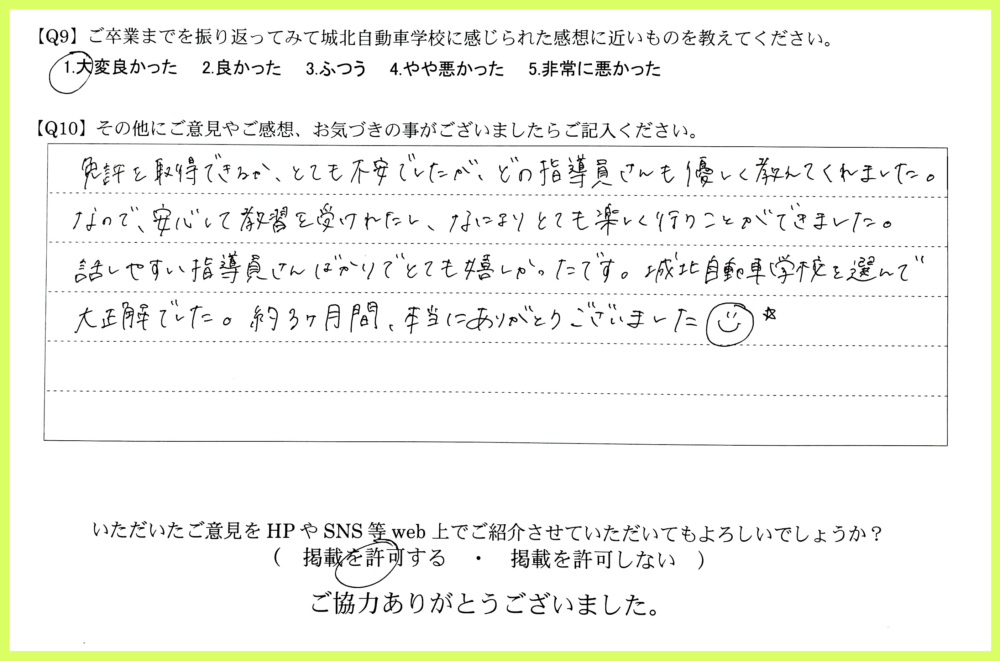 【Q9】ご卒業までを振り返ってみて城北自動車学校に感じられた感想に近いものを教えてください。
1.大変良かった 2.良かった 3.ふつう 4.やや悪かった 5.非常に悪かった
【Q10】その他にご意見やご感想、お気づきの事がございましたらご記入ください。
免許を取得できるか、とても不安でしたが、どの指導員さんも優しく教えてくれました。
なので、安心して教習を受けれたし、なによりとても楽しく行うことができました。
話しやすい指導員さんばかりでとても嬉しかったです。城北自動車学校を選んで
大正解でした。約3ヶ月間、本当にありがとうございました
いただいたご意見を HP や SNS 等 web 上でご紹介させていただいてもよろしいでしょうか？
( 掲載を許可する ・ 掲載を許可しない )
ご協力ありがとうございました。